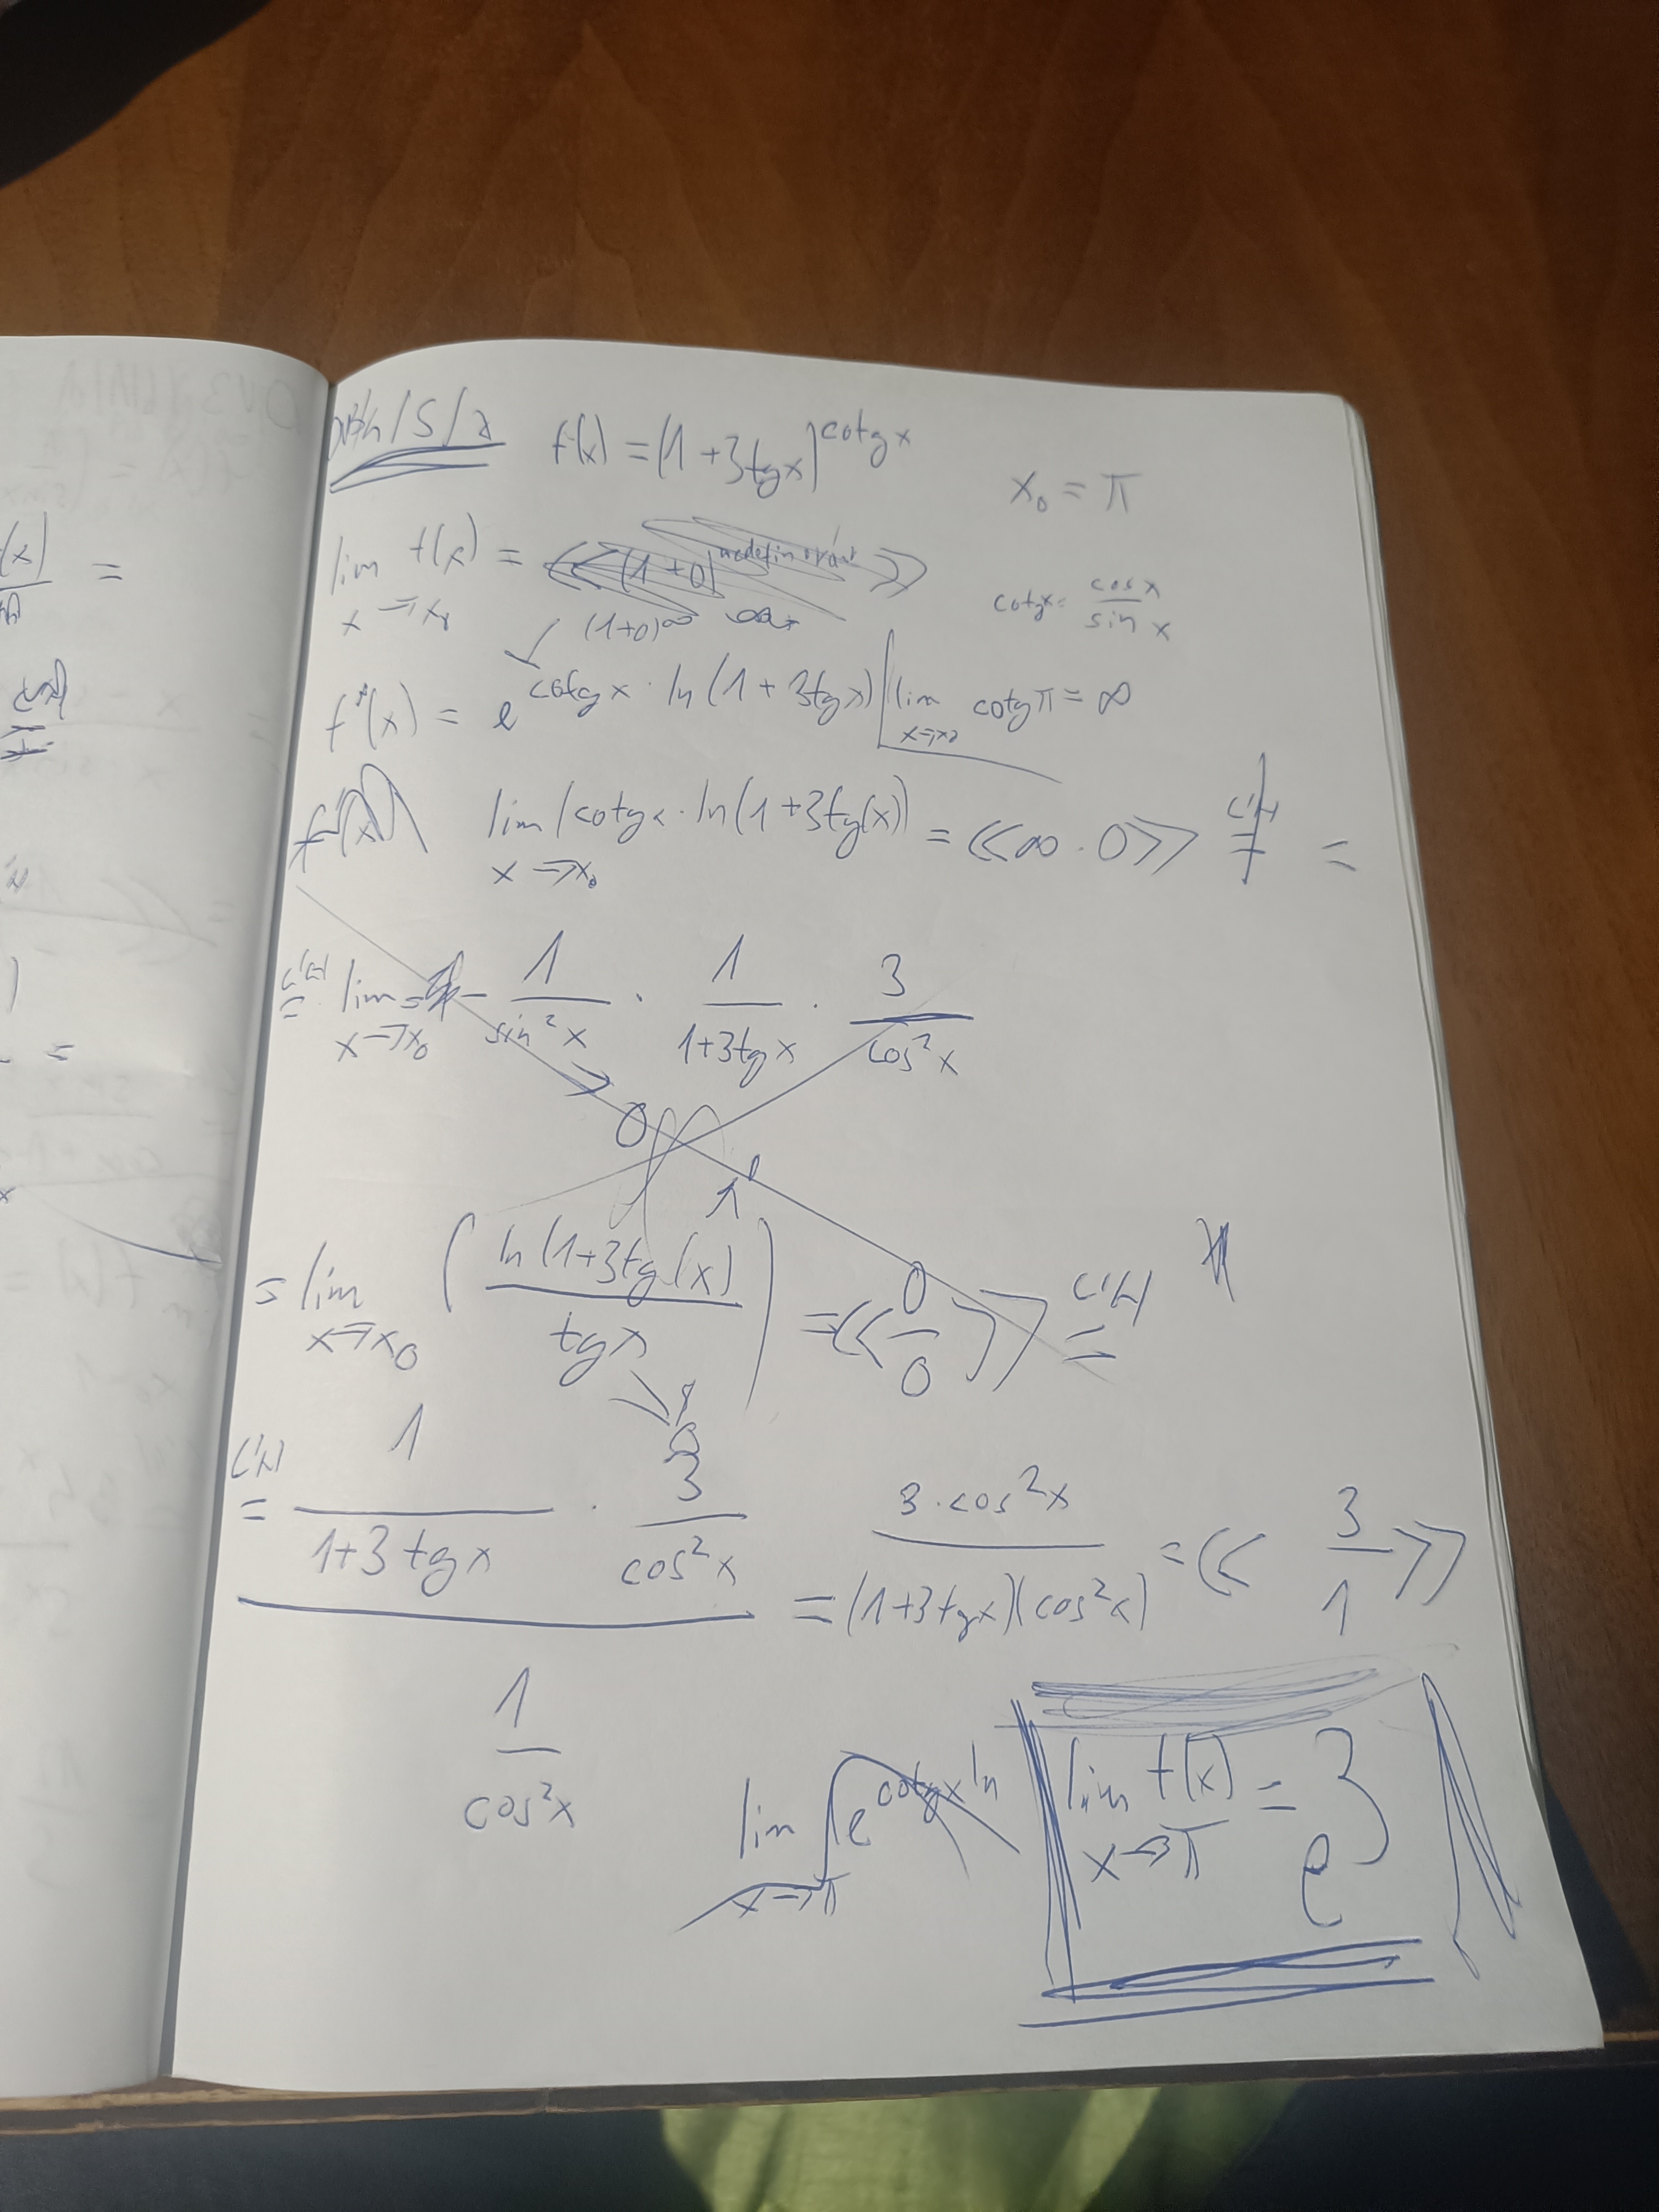 /5/2 f(x) = (1+3tgx)^cotgx x₀ = π
lim x→x₀ f(x) = << (1+0) >>
(1+0)^∞
cotgx = cosx/sin x
f(x) = e^(cotgx · ln(1+3tgx)) | lim x→x₀ cotgπ = ∞
f(x) lim x→x₀ (cotgx · ln(1+3tg(x)) = <<∞·0>> L'H = =
L'H = lim x→x₀ - 1/sin²x · 1/(1+3tgx) · 3/cos²x
0
1
= lim x→x₀ (ln(1+3tg(x)/tgx) = <<0/0>> L'H =
0
L'H = (1/(1+3tgx) · 3/cos²x)/(1/cos²x) = 3·cos²x/(1+3tgx)(cos²x) = <<3/1>>
lim x→π e^cotgx ln
lim x→π f(x) = e³